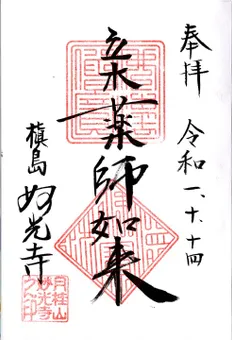 奉拝 令和一、十、十四
立木薬師如来
槇島 妙光寺
月桂山
妙光寺